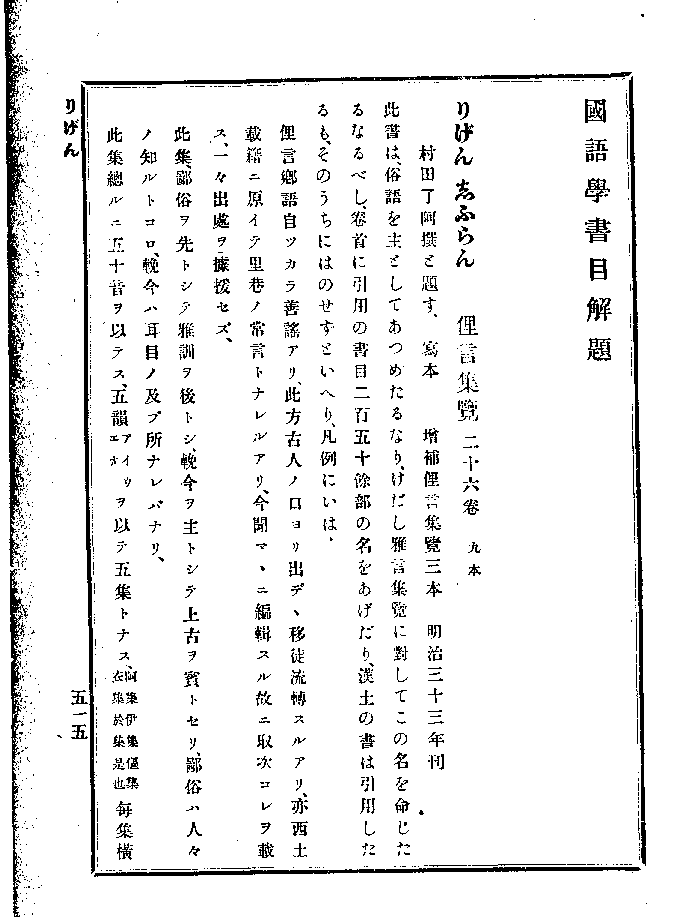 國語學書目解題
りげん 志ふらん 俚言集覽 二十六卷 九本
村田了阿撰と題す、 寫本 增補俚言集覽三本 明治三十三年刊
此書は、俗語を主としてあつめたるなり、けだし雅言集覽に對してこの名を命じた
るなるべし、卷首に引用の書目二百五十餘部の名をあげたり、漢土の書は引用した
るも、そのうちにはのせずといへり、凡例にいは、
俚言鄕語自ツカラ善謠アリ、此方古人ノ口ヨリ出デヽ移徒流轉スルアリ、亦西土
載籍ニ原イテ里巷ノ常言トナレルアリ、今聞マヽニ編輯スル故ニ取次コレヲ載
ス、一々出處ヲ據援セズ、
此集、鄙俗ヲ先トシテ雅訓ヲ後トシ、輓今ヲ主トシテ上古ヲ賓トセリ、鄙俗ハ人々
ノ知ルトコロ、輓今ハ耳目ノ及ブ所ナレバナリ、
此集總ルニ五十音ヲ以テス、五韻アイウエオヲ以テ五集トナス、阿集伊集宇集衣集於集是也 每集橫
りげん
五一五